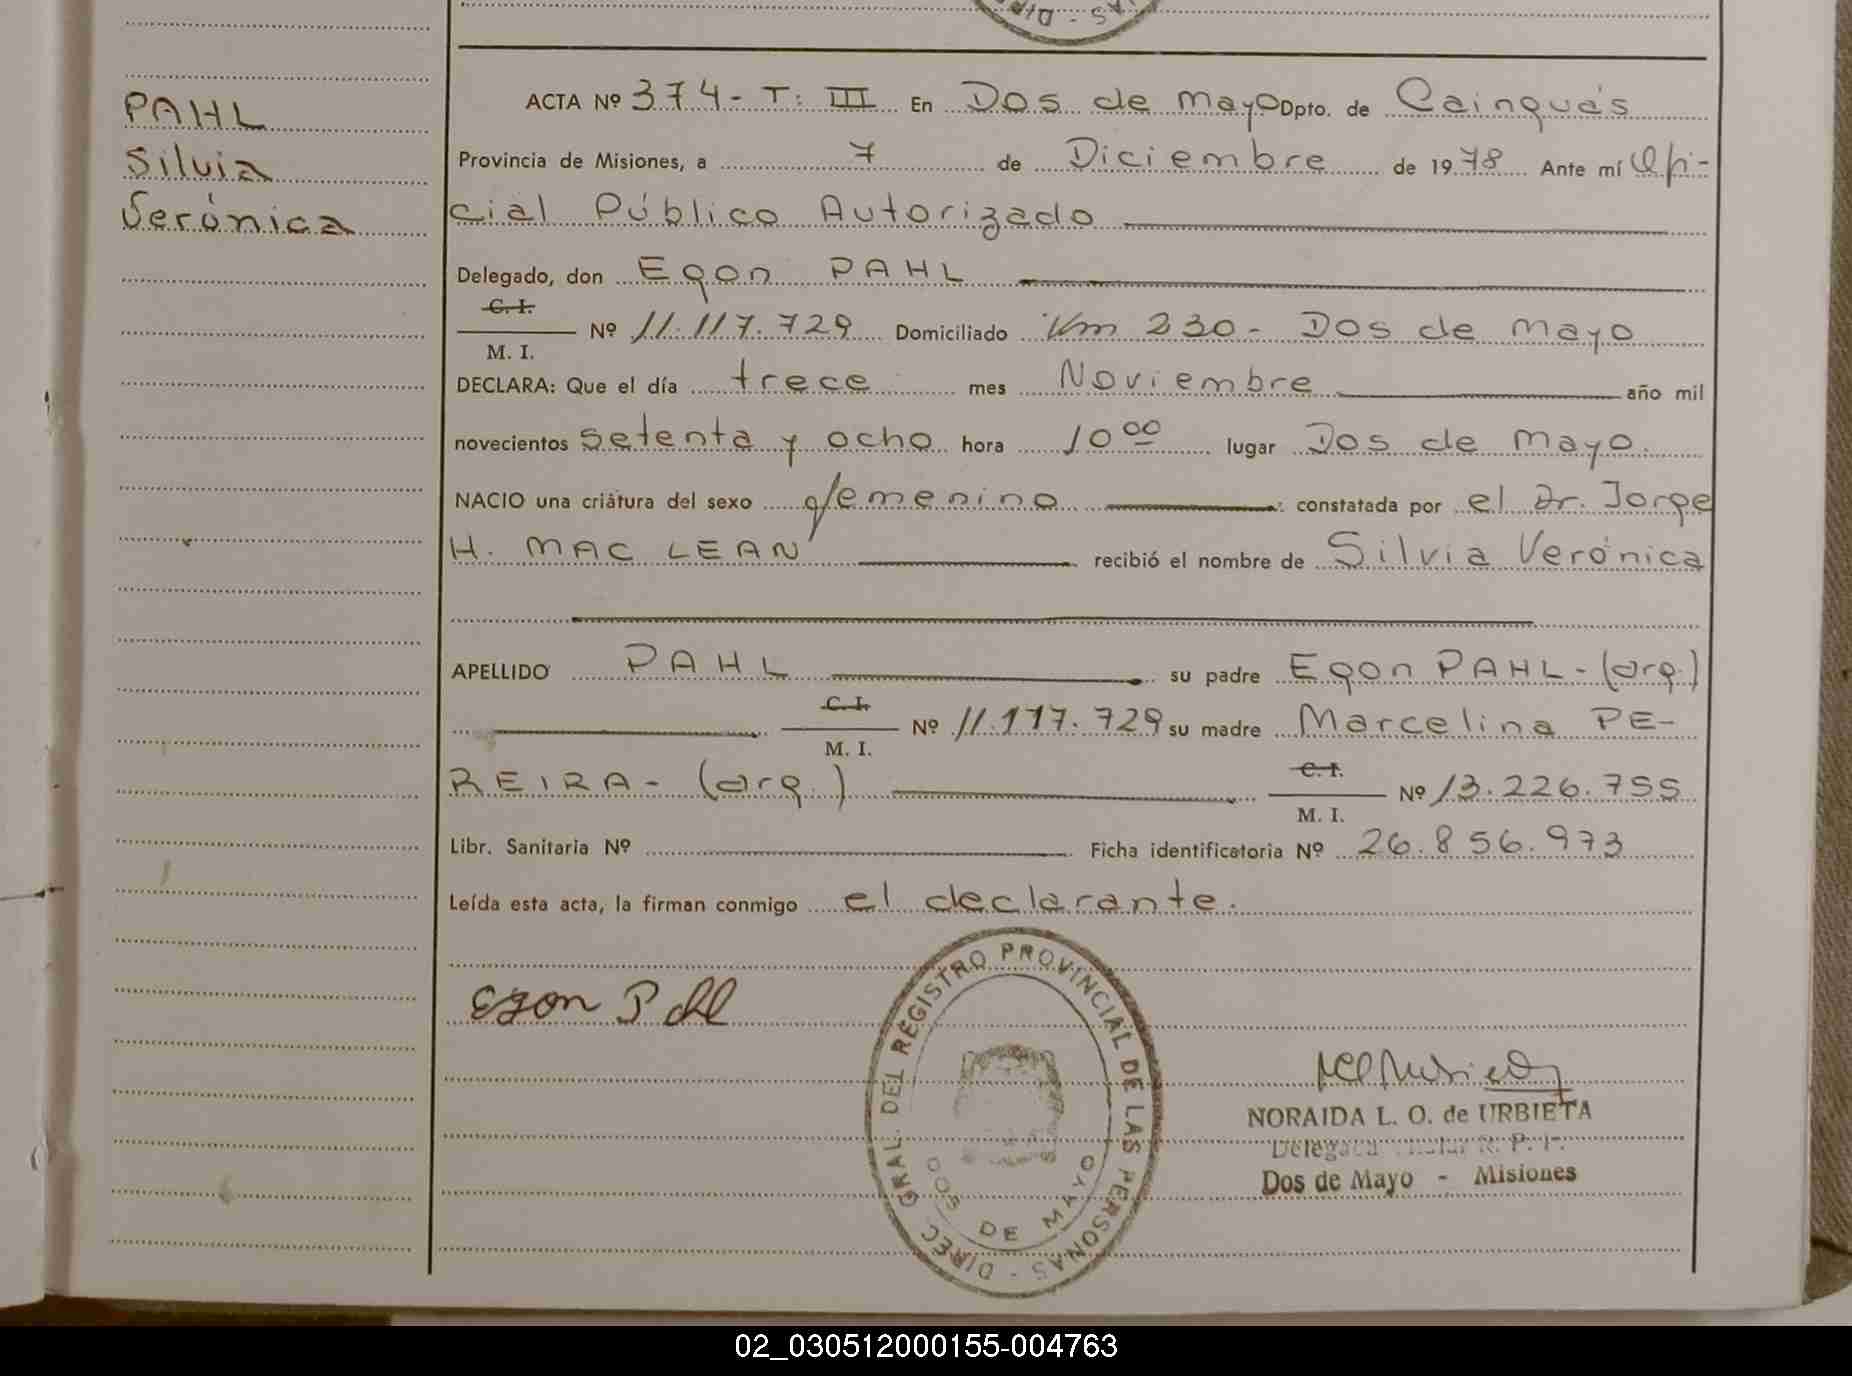 PAHL
Silvia
Verónica
ACTA Nº 374 - T: III En Dos de Mayo Dpto. de Cainguás
Provincia de Misiones, a 7 de Diciembre de 1978 Ante mí Ofi-
cial Público Autorizado
Delegado, don Egon PAHL
C. I.
M. I.
Nº 11.117.729 Domiciliado Km 230 - Dos de Mayo
DECLARA: Que el día trece mes Noviembre año mil
novecientos setenta y ocho hora 10 00 lugar Dos de Mayo.
NACIO una criatura del sexo femenino constatada por el Dr. Jorge
H. MAC LEAN recibió el nombre de Silvia Verónica
APELLIDO PAHL su padre Egon PAHL - (arg.)
C. I.
M. I.
Nº 11.117.729 su madre Marcelina PE-
REIRA - (arg.)
C. I.
M. I.
Nº 13.226.755
Libr. Sanitaria Nº Ficha identificatoria Nº 26.856.973
Leída esta acta, la firman conmigo el declarante.
DIREC. GRAL. DEL REGISTRO PROVINCIAL DE LAS PERSONAS -
DOS DE MAYO
Egon Pahl
NORAIDA L. O. de URBIETA
Delegada Titular R. P. P.
Dos de Mayo - Misiones
02_030512000155-004763